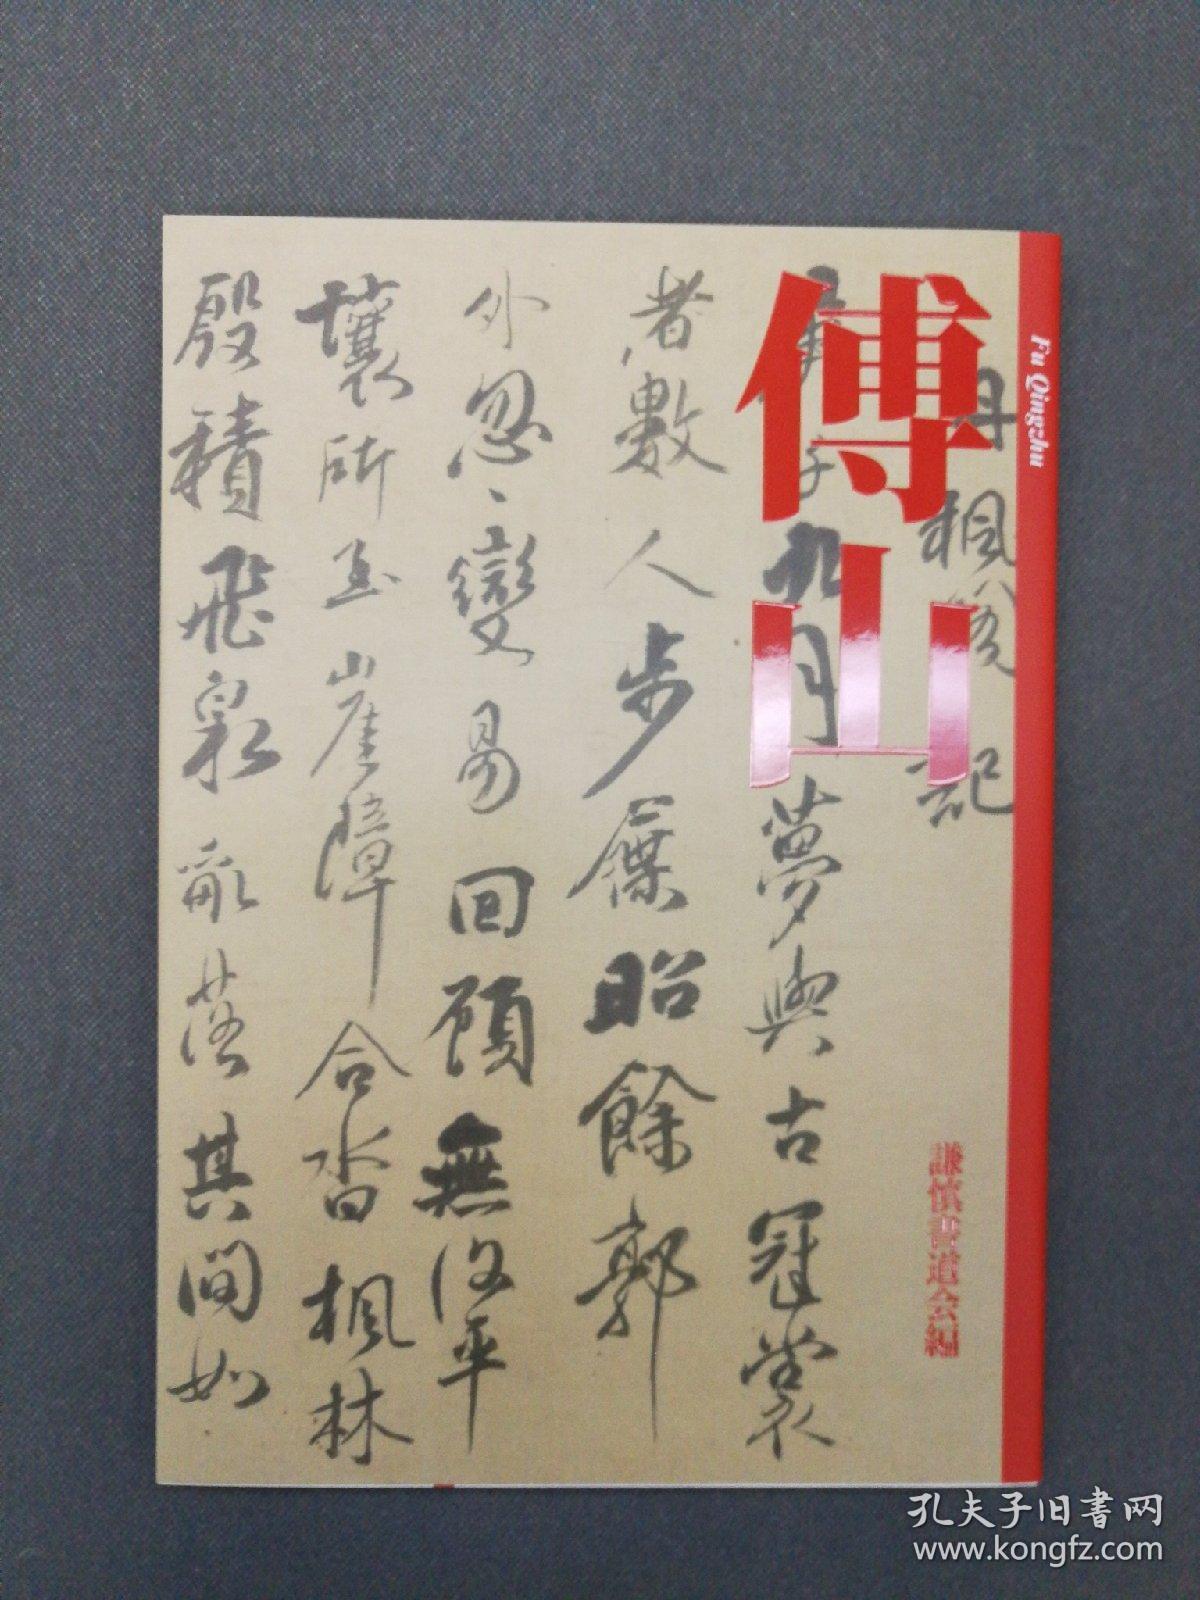 傅山
Fu Qingzhu
謙慎書道会編
丹楓閣記
庚子九月夢與古冠裳
者數人步屧昭餘郭
外忽〻變易回顧無復平
壤所至山崖障合沓楓林
殷積飛泉亂落其間如
孔夫子旧书网
www.kongfz.com